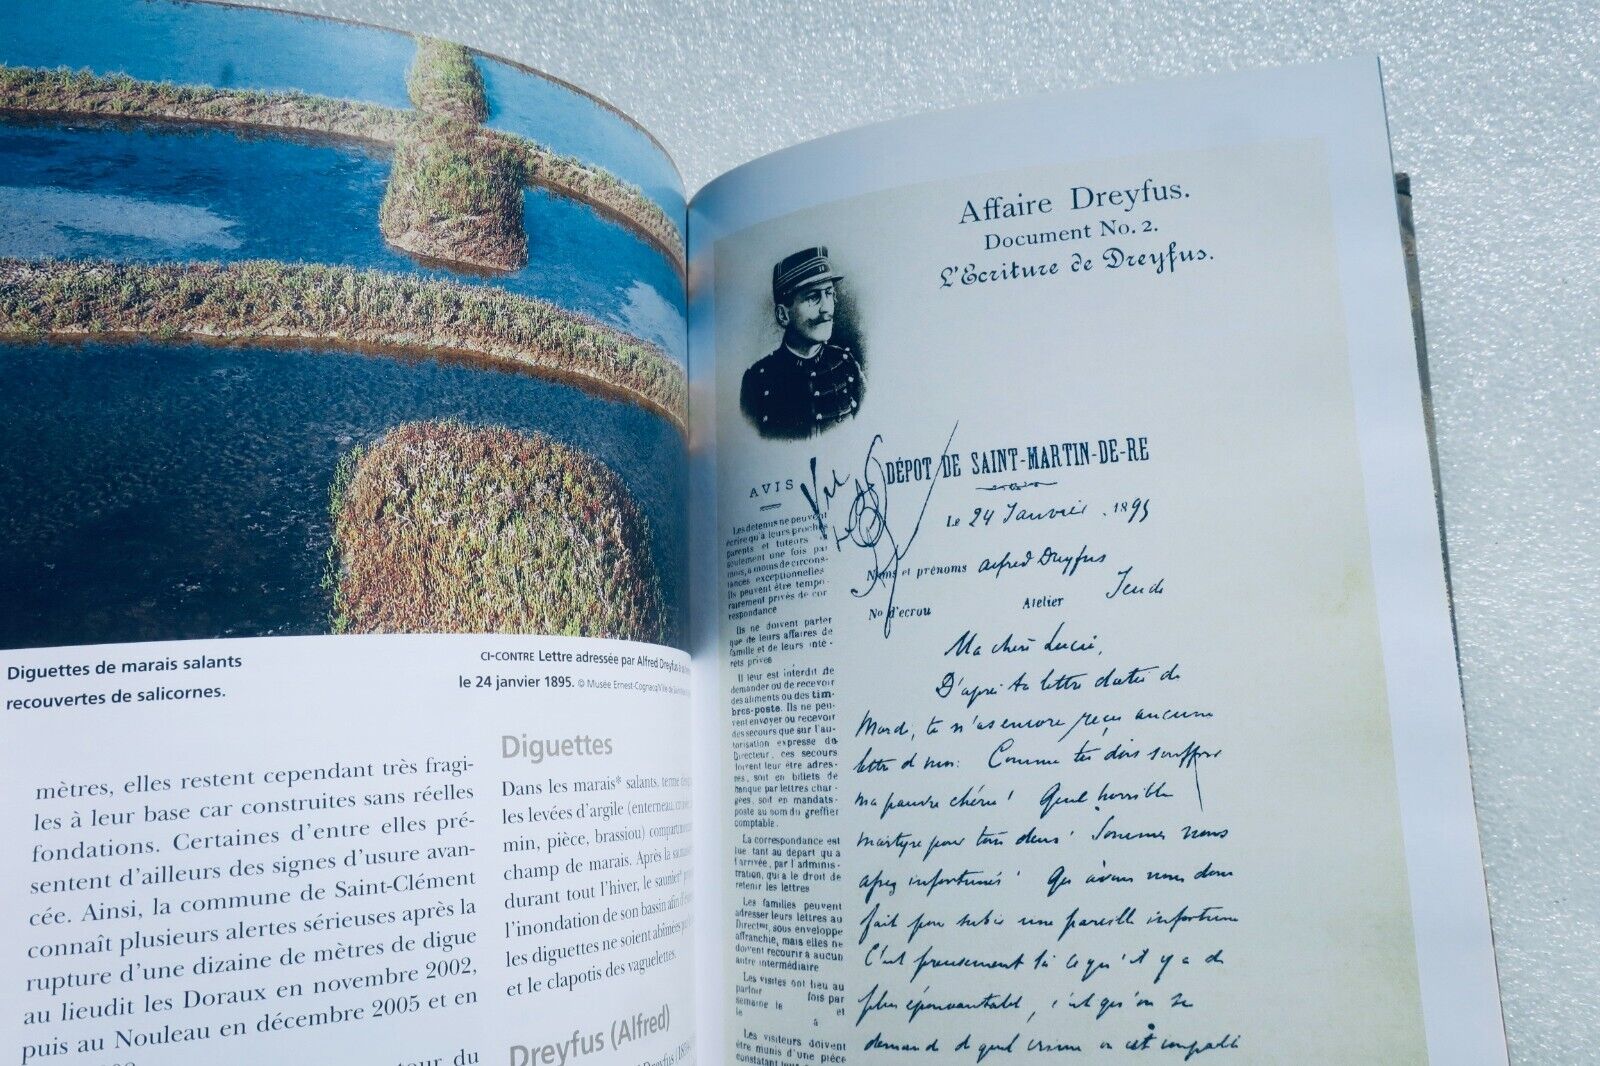 Diguettes de marais salants
recouvertes de salicornes.
CI-CONTRE Lettre adressée par Alfred Dreyfus à
le 24 janvier 1895. © Musée Ernest-Cognacq/Ville de
mètres, elles restent cependant très fragi-
les à leur base car construites sans réelles
fondations. Certaines d'entre elles pré-
sentent d'ailleurs des signes d'usure avan-
cée. Ainsi, la commune de Saint-Clément
connaît plusieurs alertes sérieuses après la
rupture d'une dizaine de mètres de digue
au lieudit les Doraux en novembre 2002,
puis au Nouleau en décembre 2005 et en
tour du
Diguettes
Dans les marais* salants, terme
les levées d'argile (enterneau,
min, pièce, brassiou) compartimentant
champ de marais. Après la
durant tout l'hiver, le saunier*
l'inondation de son bassin afin
les diguettes ne soient abîmées
et le clapotis des vaguelettes.
Dreyfus (Alfred)
Dreyfus
Affaire Dreyfus.
Document No. 2.
L'Ecriture de Dreyfus.
AVIS
Les détenus ne peuvent
écrire qu'à leurs proches
parents et tuteurs et
seulement une fois par
mois, à moins de circons-
tances exceptionnelles
Ils peuvent être tempo-
rairement privés de cor
respondance
Ils ne doivent parler
que de leurs affaires de
famille et de leurs inté-
rêts privés
Il leur est interdit de
demander ou de recevoir
des aliments ou des tim-
bres-poste. Ils ne peu-
vent envoyer ou recevoir
des secours que sur l'au-
torisation expresse du
Directeur, ces secours
doivent leur être adres-
sés, soit en billets de
banque par lettres char-
gées, soit en mandats-
poste au nom du greffier
comptable.
La correspondance est
lue tant au départ qu'a
l'arrivée, par l'adminis-
tration, qui a le droit de
retenir les lettres
Les familles peuvent
adresser leurs lettres au
Direct, sous enveloppe
affranchie, mais elles ne
doivent recourir à aucun
autre intermédiaire
Les visites ont lieu au
parloir fois par
semaine le et
le à
Les visiteurs doivent
être munis d'une pièce
constatant
Vu
DÉPOT DE SAINT-MARTIN-DE-RE
Le 24 Janvier 1895
Noms et prénoms Alfred Dreyfus
No d'écrou Atelier Jeudi
Ma chère Lucie,
D'après ta lettre datée de
Mardi, tu n'as encore reçu aucune
lettre de moi. Comme tu dois souffrir
ma pauvre chérie! Quel horrible
martyre pour tous deux! Sommes nous
assez infortunés! Qu'avons nous donc
fait pour subir une pareille infortune
C'est précisément là ce qu'il y a de
plus épouvantable, c'est qu'on se
demande de quel crime on est coupable